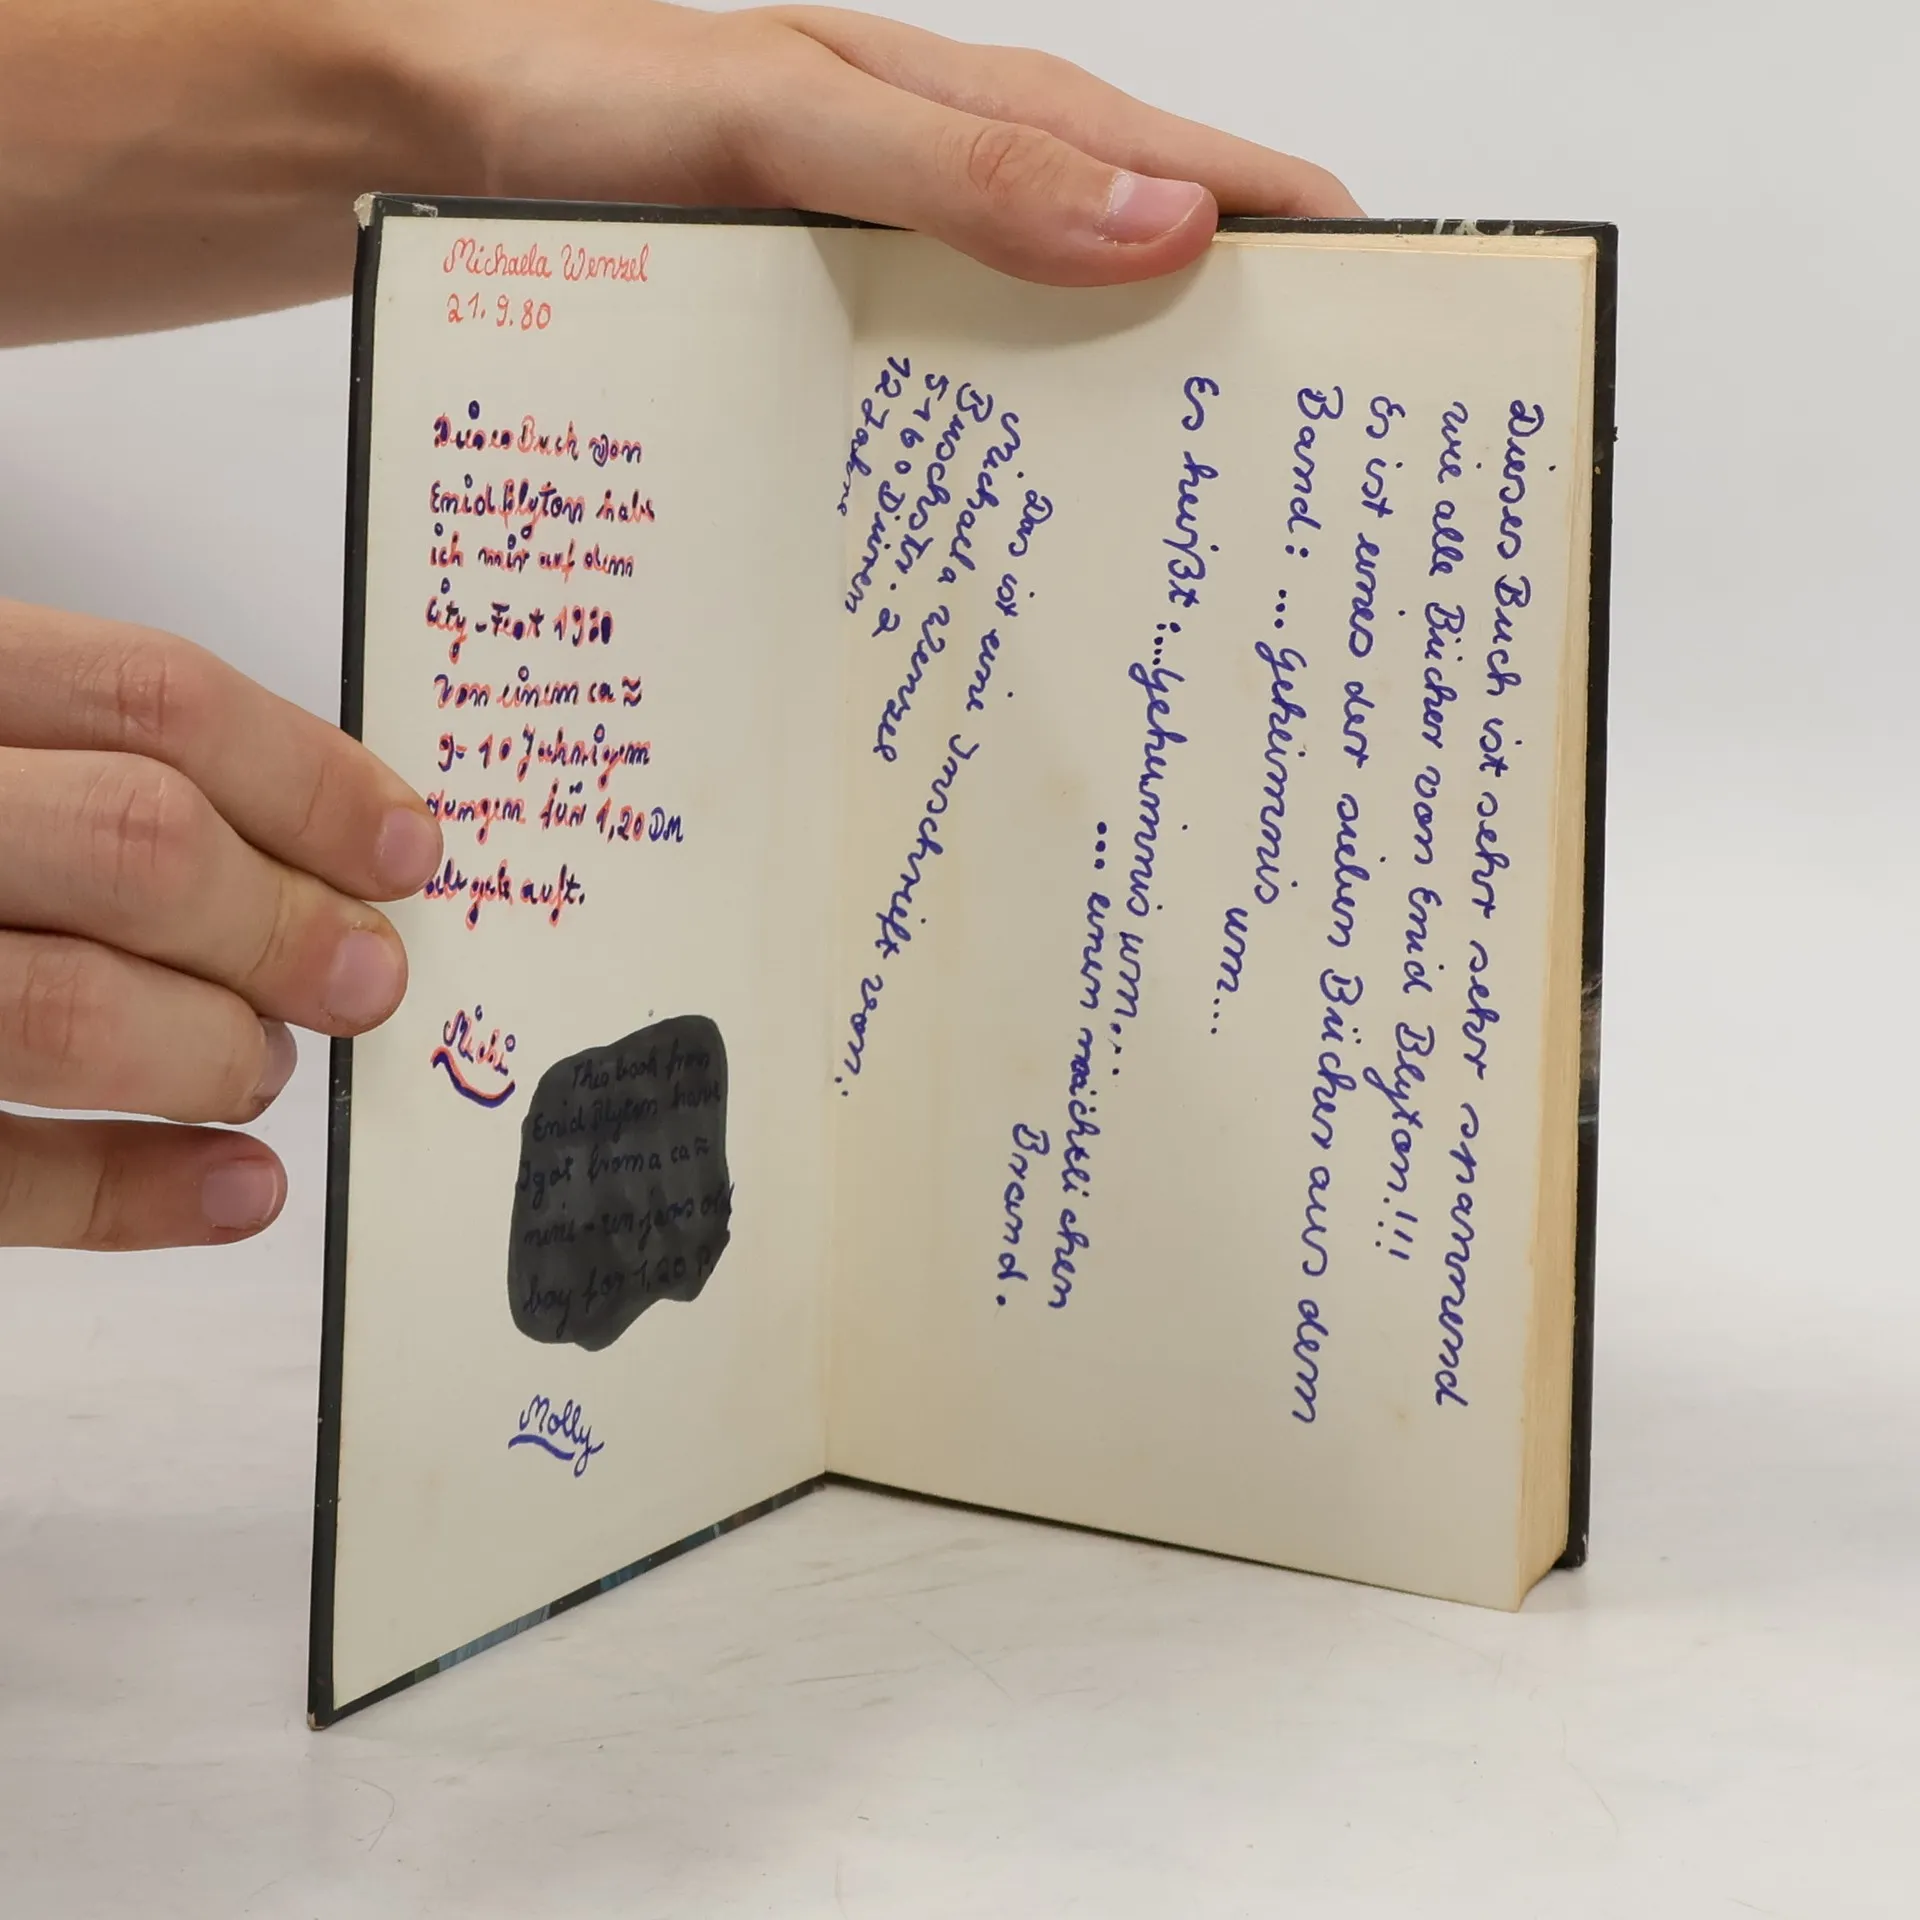 Michaela Wenzel
21.9.80
Dieses Buch von
Enid Blyton habe
ich mir auf dem
City-Fest 1980
von einem ca ≈
9-10 Jährigem
Jungen für 1,20 DM
abgekauft.
Michi
This book from
Enid Blyton have
I got from a ca ≈
nine - ten jears old
boy for 1,20 P.
Molly
Dieses Buch ist sehr sehr sehr spannend
wie alle Bücher von Enid Blyton!!!
Es ist eines der sieben Bücher aus dem
Band: ...Geheimnis um...
Es heißt:...Geheimnis um...
... einen nächtlichen
Brand.
Das ist eine Inschrift von:
Michaela Wenzel
Buschstr. 2
5160 Düren
12 Jahre